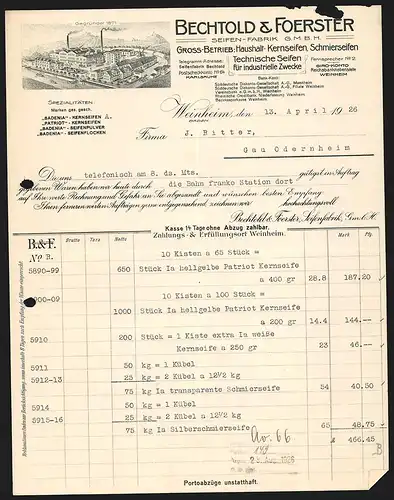 Gegründet 1871
BECHTOLD & FOERSTER
SEIFEN-FABRIK G.M.B.H.
GROSS-BETRIEB: Haushalt- Kernseifen, Schmierseifen
Technische Seifen
für industrielle Zwecke
Telegramm-Adresse:
Seifenfabrik Bechtold
Postscheckkonto
KARLSRUHE
Fernsprecher Nº 2
GIRO-KONTO
Reichsbanknebenstelle
WEINHEIM
Bank-Konti:
Süddeutsche Disconto-Gesellschaft A.-G., Mannheim
Süddeutsche Disconto-Gesellschaft A.-G., Filiale Weinheim
Vereinsbank e.G.m.b.H., Weinheim
Rheinische Creditbank, Niederlassung Weinheim
Bezirkssparkasse Weinheim
SPEZIALITÄTEN:
Marken ges. gesch.
„BADENIA" - KERNSEIFEN
„PATRIOT" - KERNSEIFEN
„BADENIA" - SEIFENPULVER
„BADENIA" - SEIFENFLOCKEN
Weinheim, den 13. April 1926
(BADEN)
Firma J. Ritter,
Gau Odernheim
Des telefonisch am 8. ds. Mts. gütigst im Auftrag
gegebenen Waren haben wir heute durch die Bahn franko Station dort
auf Ihre werte Rechnung und Gefahr an Sie abgesandt und wünschen besten Empfang
Ihren ferneren werten Aufträgen gerne entgegensehend zeichnen wir hochachtungsvoll
Bechtold & Foerster, Seifenfabrik, G.m.b.H.
Kasse 14 Tage ohne Abzug zahlbar.
Zahlungs- & Erfüllungsort Weinheim.
B.&F. Nº R. Brutto Tara Netto Mark Pfg.
10 Kisten a 65 Stück =
5890-99 650 Stück Ia hellgelbe Patriot Kernseife
a 400 gr 28.8 187.20
10 Kisten a 100 Stück =
00-09 1000 Stück Ia hellgelbe Patriot Kernseife
a 200 gr 14.4 144.—
5910 200 Stück = 1 Kiste extra Ia weiße
Kernseife a 250 gr 23 46.—
5911 50 kg = 1 Kübel
5912-13 25 kg = 2 Kübel a 12½ kg
75 kg Ia transparente Schmierseife 54 40.50
5914 50 kg = 1 Kübel
5915-16 25 kg = 2 Kübel a 12½ kg
75 kg Ia Silberschmierseife 65 48.75
466.45
1926
Portoabzüge unstatthaft.